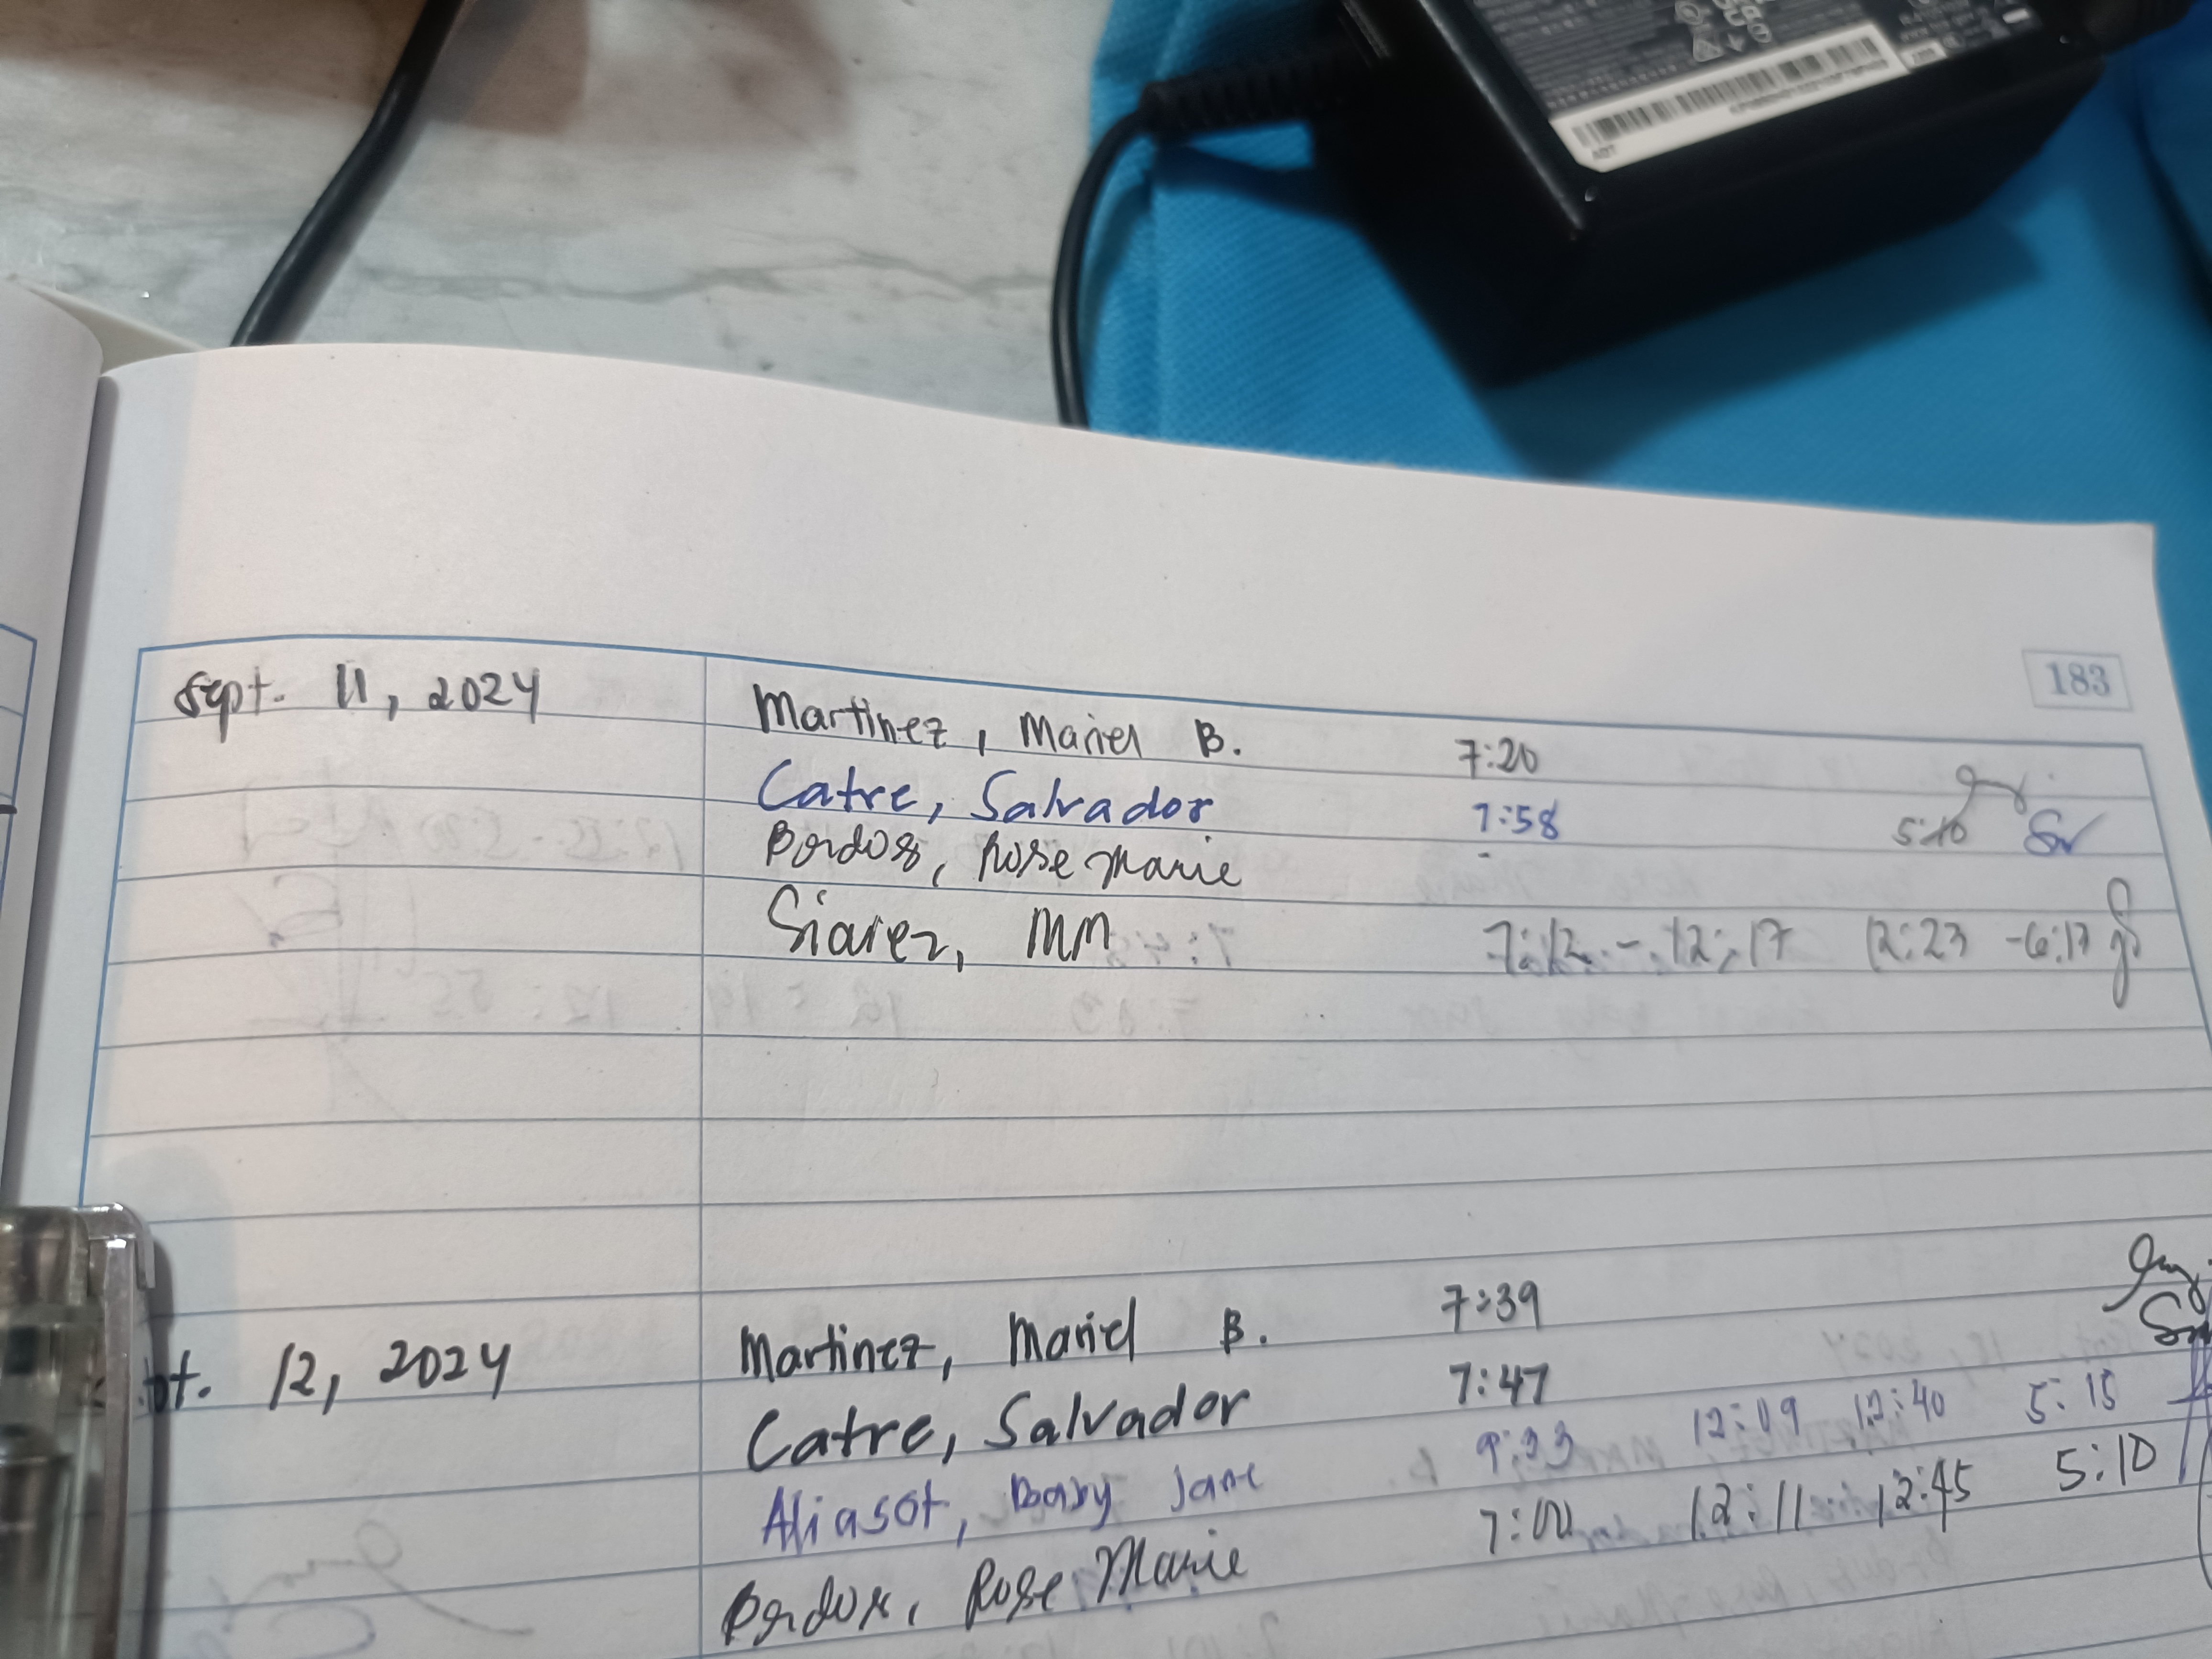 183
Sept. 11, 2024 Martinez, Mariel B. 7:20
Catre, Salvador 7:58 5:10
Bordos, Rose Marie -
Siarez, MM 7:12 - 12:17 12:23 -6:17
12, 2024 Martinez, Mariel B. 7:39
Catre, Salvador 7:47
Aliasot, Baby Jane 9:33 12:09 12:40 5:15
Bordos, Rose Marie 7:00 12:11 12:45 5:10